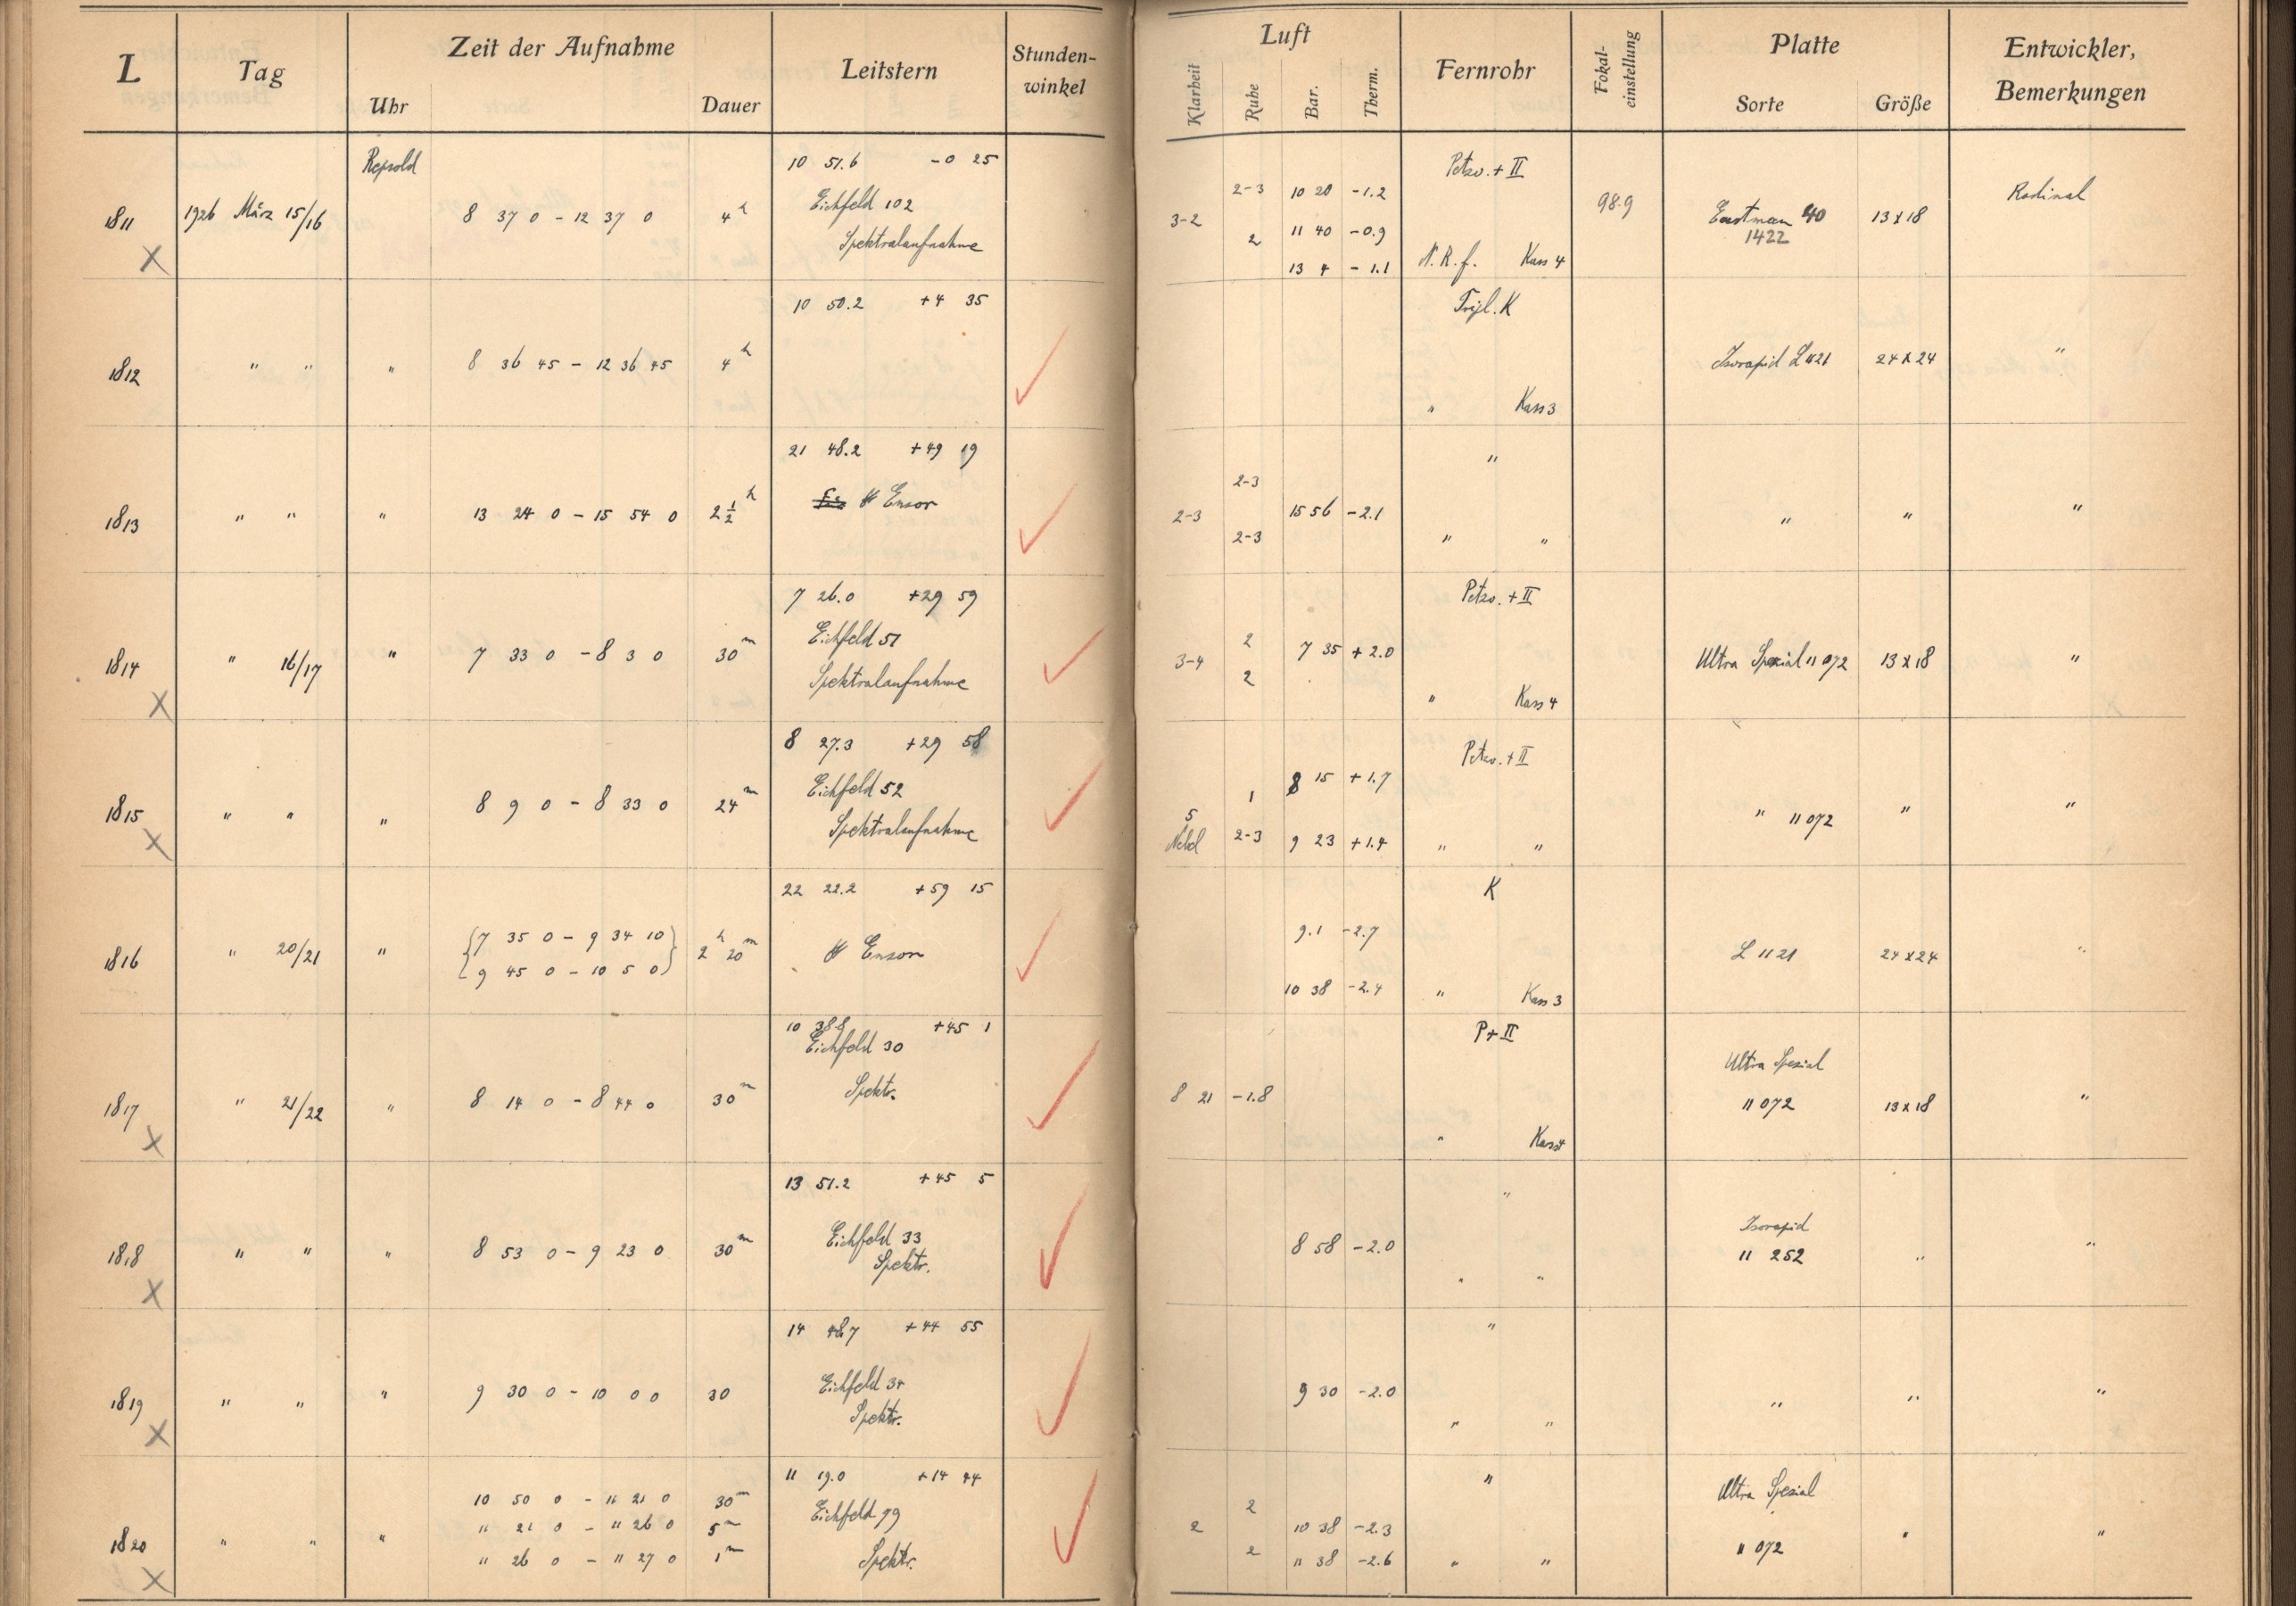 L Tag Zeit der Aufnahme Leitstern Stunden-winkel Luft Fernrohr Fokal-einstellung Platte Entwickler, Bemerkungen
Uhr Dauer Klarheit Ruhe Bar. Therm. Sorte Größe
Repsold 10 51.6 -0 25 Petzv. + II
1811 1926 März 15/16 8 37 0 - 12 37 0 4h Eichfeld 102 3-2 2-3 10 20 -1.2 98.9 Eastman 40 13x18 Rodinal
X Spektralaufnahme 2 11 40 -0.9 1422
13 4 -1.1 N.R.f. Kass 4
10 50.2 +4 35 Tripl. K
1812 " " " 8 36 45 - 12 36 45 4h Isorapid L 1121 24x24 "
" Kass 3
21 48.2 +49 19 "
1813 " " " 13 24 0 - 15 54 0 2 1/2 h Ensor 2-3 2-3 15 56 -2.1 " " "
2-3 " "
7 26.0 +29 59 Petzv. + II
1814 " 16/17 " 7 33 0 - 8 3 0 30m Eichfeld 51 3-4 2 7 35 +2.0 Ultra Spezial 11072 13x18 "
X Spektralaufnahme 2 " Kass 4
8 27.3 +29 58 Petzv. + II
1815 " " " 8 9 0 - 8 33 0 24m Eichfeld 52 5 1 8 15 +1.7 " 11072 " "
X Spektralaufnahme 2-3 9 23 +1.4 " "
22 22.2 +59 15 K
1816 " 20/21 " {7 35 0 - 9 34 10} 2h 20m Ensor 9.1 -2.7 L 1121 24x24 "
{9 45 0 - 10 5 0} 10 38 -2.4 " Kass 3
10 38.8 +45 1 P + II
1817 " 21/22 " 8 14 0 - 8 44 0 30m Eichfeld 30 8 21 -1.8 Ultra Spezial 13x18 "
X Spektr. 11072 " Kass 4
13 51.2 +45 5 "
1818 " " " 8 53 0 - 9 23 0 30m Eichfeld 33 8 58 -2.0 Isorapid " "
X Spektr. 11252 " "
14 48.7 +44 55 "
1819 " " " 9 30 0 - 10 0 0 30 Eichfeld 34 9 30 -2.0 " " "
X Spektr. " "
11 19.0 +14 44 "
10 50 0 - 11 21 0 30m Eichfeld 79 2 Ultra Spezial
1820 " " " " 21 0 - 11 26 0 5m 2 10 38 -2.3 11072 " "
X " 26 0 - 11 27 0 1m Spektr. 2 11 38 -2.6 " "